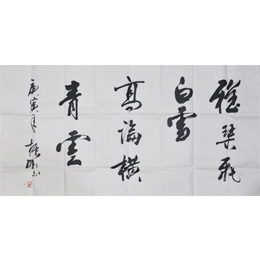 雅琴飛
白雪
高論橫
青雲
庚寅年